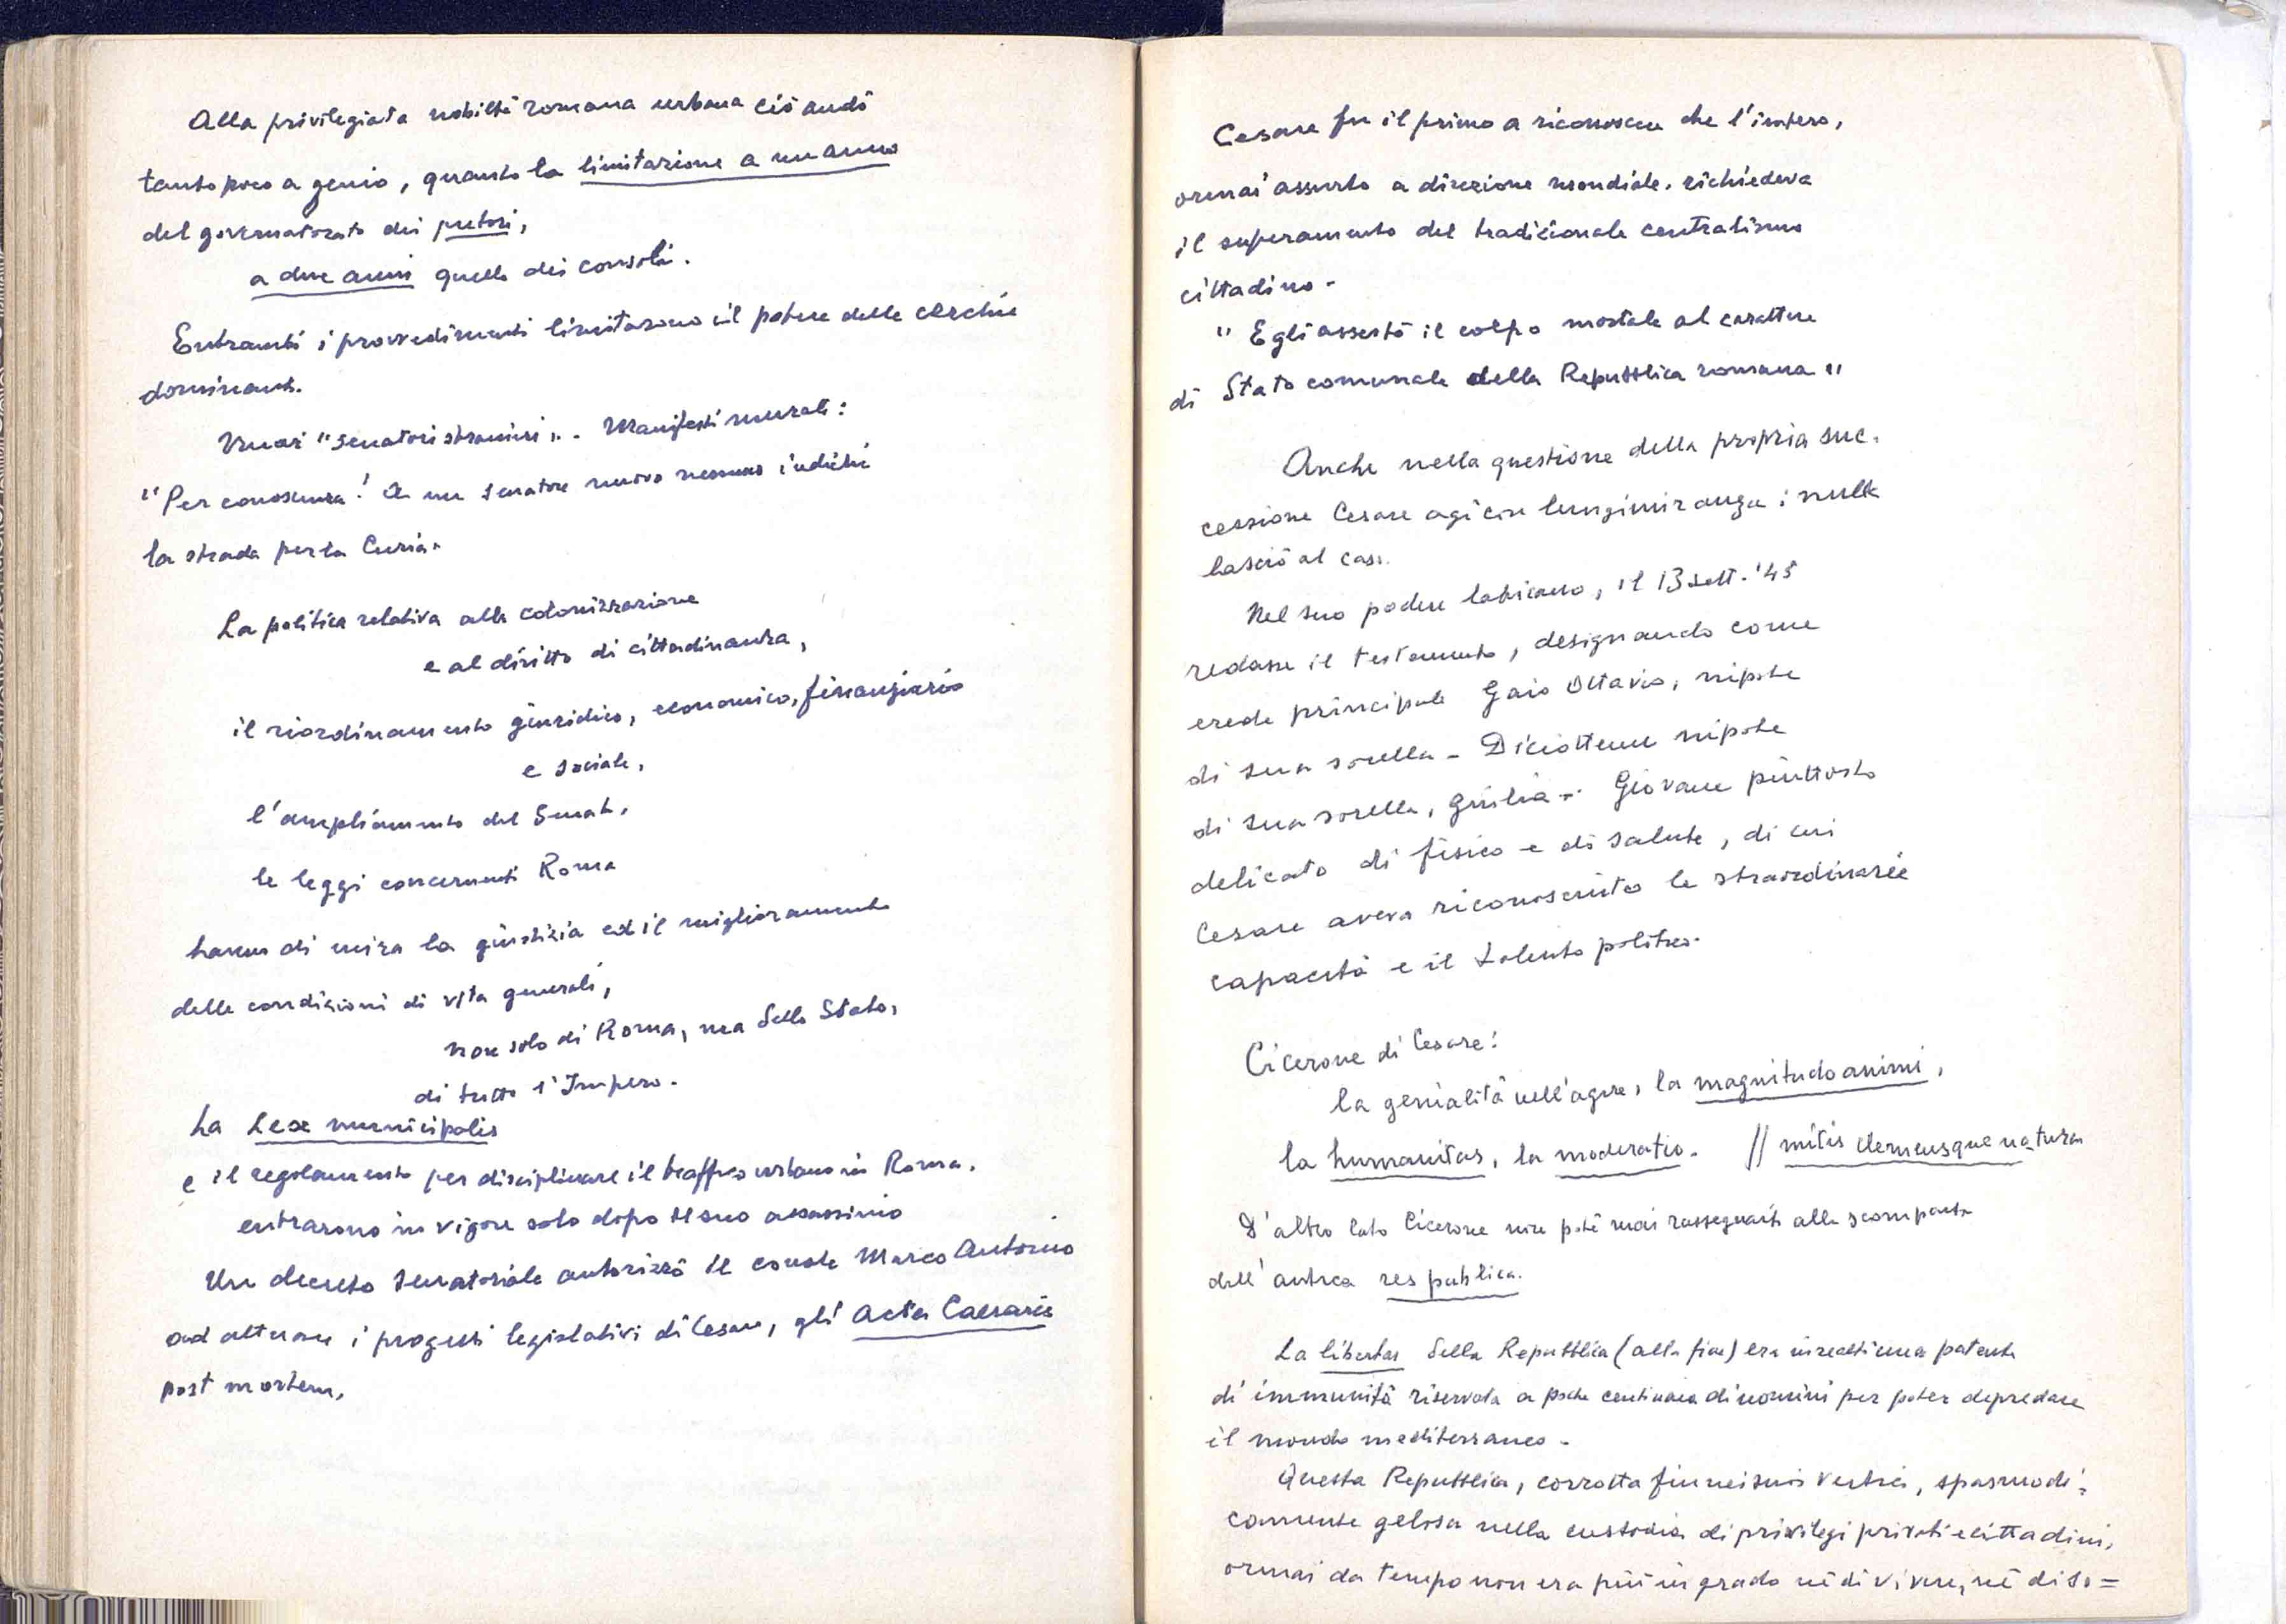 Alla privilegiata nobiltà romana urbana ciò andò
tanto poco a genio, quanto la limitazione a un anno
del governatorato dei pretori,
a due anni quello dei consoli.
Entrambi i provvedimenti limitarono il potere delle cerchie
dominanti.
"senatori stranieri". Manifesti murali:
"Per conoscenza! A un senatore nuovo nessuno indichi
la strada per la Curia"
La politica relativa alla colonizzazione
e al diritto di cittadinanza,
il riordinamento giuridico, economico, finanziario
e sociale,
l'ampliamento del Senato,
le leggi concernenti Roma
hanno di mira la giustizia ed il miglioramento
delle condizioni di vita generali,
non solo di Roma, ma dello Stato,
di tutto l'Impero.
La Lex municipalis
e il regolamento per disciplinare il traffico urbano in Roma,
entrarono in vigore solo dopo il suo assassinio
Un decreto senatoriale autorizzò il console Marco Antonio
ad attuare i progetti legislativi di Cesare, gli Acta Caesaris
post mortem,
Cesare fu il primo a riconoscere che l'impero,
ormai assurto a direzione mondiale, richiedeva
il superamento del tradizionale centralismo
cittadino -
" Egli assestò il colpo mortale al carattere
di Stato comunale della Repubblica romana "
Anche nella questione della propria suc-
cessione Cesare agì con lungimiranza: nulla
lasciò al caso.
Nel suo podere labicano, il 13 sett. '45
redasse il testamento, designando come
erede principale Gaio Ottavio, nipote
di sua sorella - Diciottenne nipote
di sua sorella, Giulia -. Giovane piuttosto
delicato di fisico e di salute, di cui
Cesare aveva riconosciuto le straordinarie
capacità e il talento politico.
Cicerone di Cesare:
la genialità nell'agire, la magnitudo animi,
la humanitas, la moderatio. // mitis clemensque natura
D'altro lato Cicerone non poté mai rassegnarsi alla scomparsa
dell'antica res publica.
La libertas della Repubblica (alla fine) era in realtà una patente
di immunità riservata a poche centinaia di uomini per poter depredare
il mondo mediterraneo -
Questa Repubblica, corrotta fin nei suoi vertici, spasmodi=
camente gelosa nella custodia di privilegi privati e cittadini,
ormai da tempo non era più in grado né di vivere, né di so=